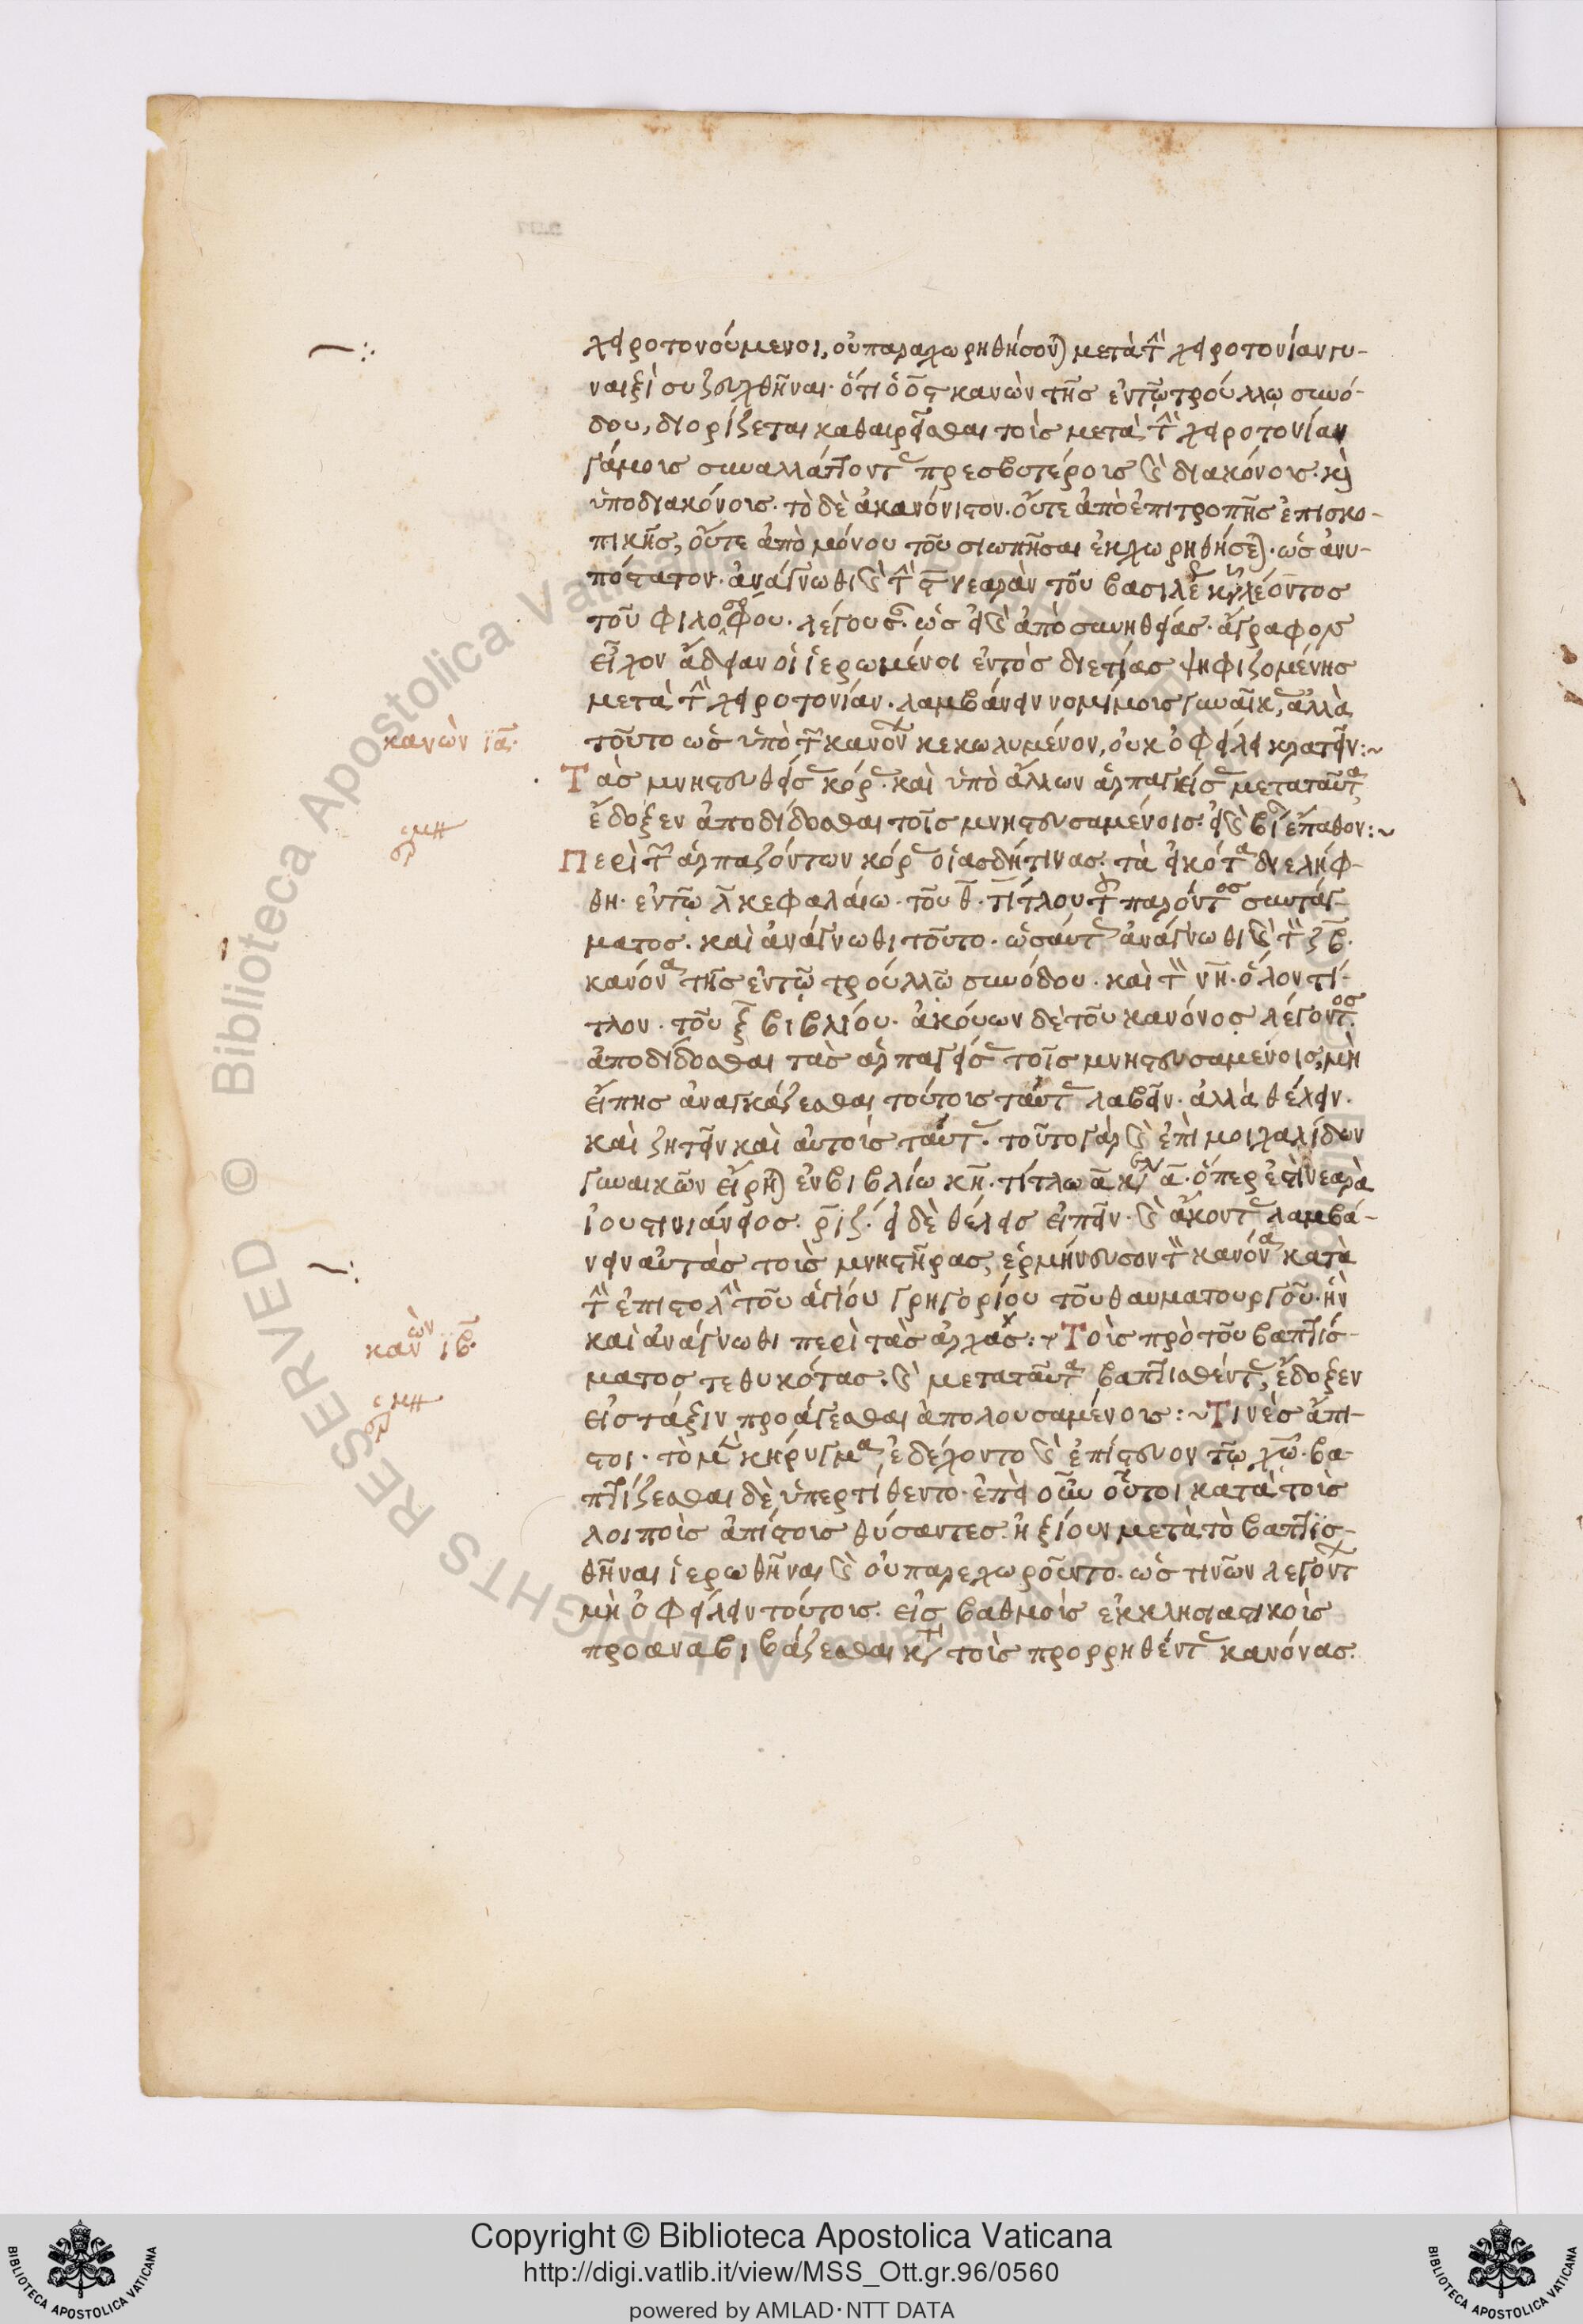 χειροτονούμενοι, οὐ παραχωρηθήσον) μετὰ τ χειροτονίαν γυ-
ναιξὶ συζευχθῆναι· ὅτι ὁ ϛ κανὼν τῆς ἐν τῷ τρούλλῳ συνό-
δου, διορίζεται καθαιρεῖσθαι τοὺς μετὰ τ χειροτονίαν
γάμοις συναλλάττοντ πρεσβυτέρους καὶ διακόνους· καὶ
ὑποδιακόνους· τὸ δὲ ἀκανόνιστον· οὔτε ἀπὸ ἐπιτροπῆς ἐπισκο-
πικῆς, οὔτε ἀπὸ μόνου τοῦ σιωπῆσαι ἐκχωρηθήσε)· ὡς ἀνυ-
πόστατον· ἀνάγνωθι καὶ τ νεαρὰν τοῦ βασιλε κυ λέοντος
τοῦ φιλοσόφου· λέγουσ· ὡς εἰ καὶ ἀπὸ συνηθείας· ἄγραφον
εἶχον ἄδειαν οἱ ἱερωμένοι ἐντὸς διετίας ψηφιζομένης
μετὰ τ χειροτονίαν· λαμβάνειν νομίμους γυναῖκ, ἀλλὰ
τοῦτο ὡς ὑπὸ τ κανόν κεκωλυμένον, οὐκ ὀφείλει κρατεῖν:~
κανὼν ια·
Τὰς μνηστευθείσ κόρ· καὶ ὑπὸ ἄλλων ἁρπαγείσ μετὰ ταῦτα
ἔδοξεν ἀποδίδοσθαι τοῖς μνηστευσαμένοις· εἰ καὶ βί ἔπαθον:~
Περὶ τ ἁρπαζόντων κόρ οἱασδήτινας· τὰ εἰκότα διελήφ-
θη· ἐν τῷ λ κεφαλαίω· τοῦ θ· τίτλου τ παρόντος συντάγ-
ματος· καὶ ἀνάγνωθι τοῦτο· ὡσαύτ ἀνάγνωθι καὶ τ ϟβ·
κανόνα τῆς ἐν τῷ τρούλλῳ συνόδου· καὶ τ νη· ὅλον τί-
τλον· τοῦ ξ βιβλίου· ἀκούων δὲ τοῦ κανόνος λέγοντος
ἀποδίδοσθαι τὰς ἁρπαγείσ τοῖς μνηστευσαμένοις, μὴ
εἴπης ἀναγκάζεσθαι τούτους ταύτ λαβεῖν· ἀλλὰ θέλειν·
καὶ ζητεῖν καὶ αὐτοὺς ταύτ· τοῦτο γὰρ καὶ ἐπὶ μοιχαλίδων
γυναικῶν εἴρη) ἐν βιβλίω κη· τίτλω α κε α· ὅπερ ἐστὶ νεαρὰ
ἰουστινιάνειος· ριζ· εἰ δὲ θέλεις εἰπεῖν· καὶ ἄκοντ λαμβά-
νειν αὐτὰς τοὺς μνηστῆρας, ἑρμήνευσον τ κανόνα κατὰ
τ ἐπιστολ τοῦ ἁγίου γρηγορίου τοῦ θαυματουργοῦ· ἣν
κανὼν ιβ·
καὶ ἀνάγνωθι περὶ τὰς ἀρχάς:~ Τοὺς πρὸ τοῦ βαπτίσ-
ματος τεθυκότας· καὶ μετὰ ταῦτα βαπτισθέντ, ἔδοξεν
εἰς τάξιν προάγεσθαι ἀπολουσαμένους:~ Τινὲς ἄπι-
στοι· τὸ μὲν κήρυγμα ἐδέχοντο καὶ ἐπίστευον τῷ χῶ· βα-
πτίζεσθαι δὲ ὑπερτίθεντο· ἐπεὶ οὖν οὗτοι κατὰ τοὺς
λοιποὺς ἀπίστους θύσαντες· ἠξίουν μετὰ τὸ βαπτισ-
θῆναι ἱερωθῆναι καὶ οὐ παρεχωροῦντο· ὡς τινῶν λεγόντ
μὴ ὀφείλειν τούτους· εἰς βαθμοὺς ἐκκλησιαστικοὺς
προαναβιβάζεσθαι κ τοὺς προρρηθέντ κανόνας·